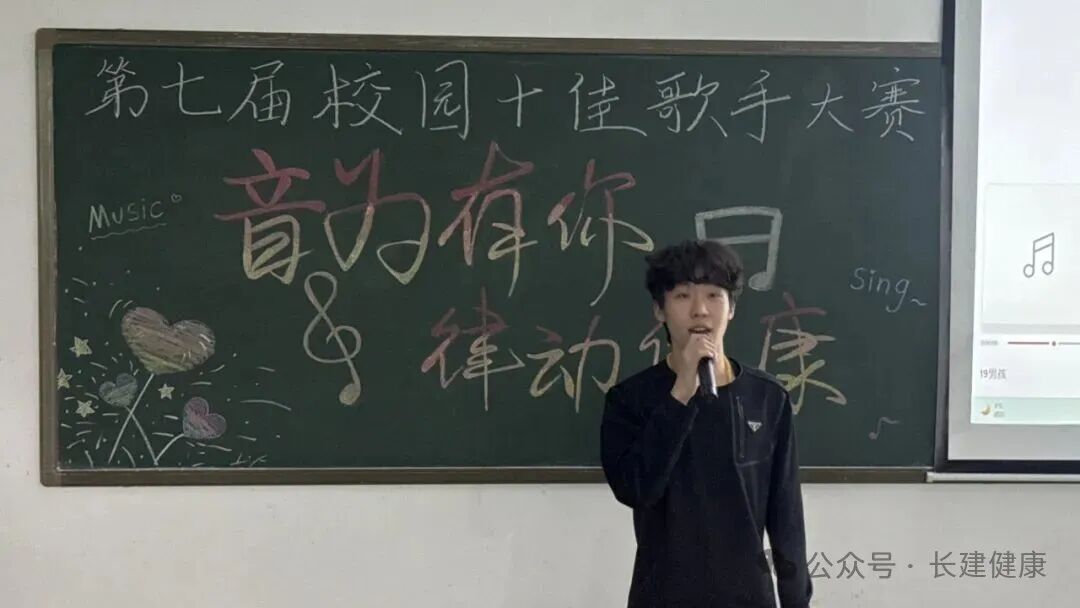 第七届校园十佳歌手大赛
音为有你
Music
Sing~
律动 康
19男孩
公众号 · 长建健康